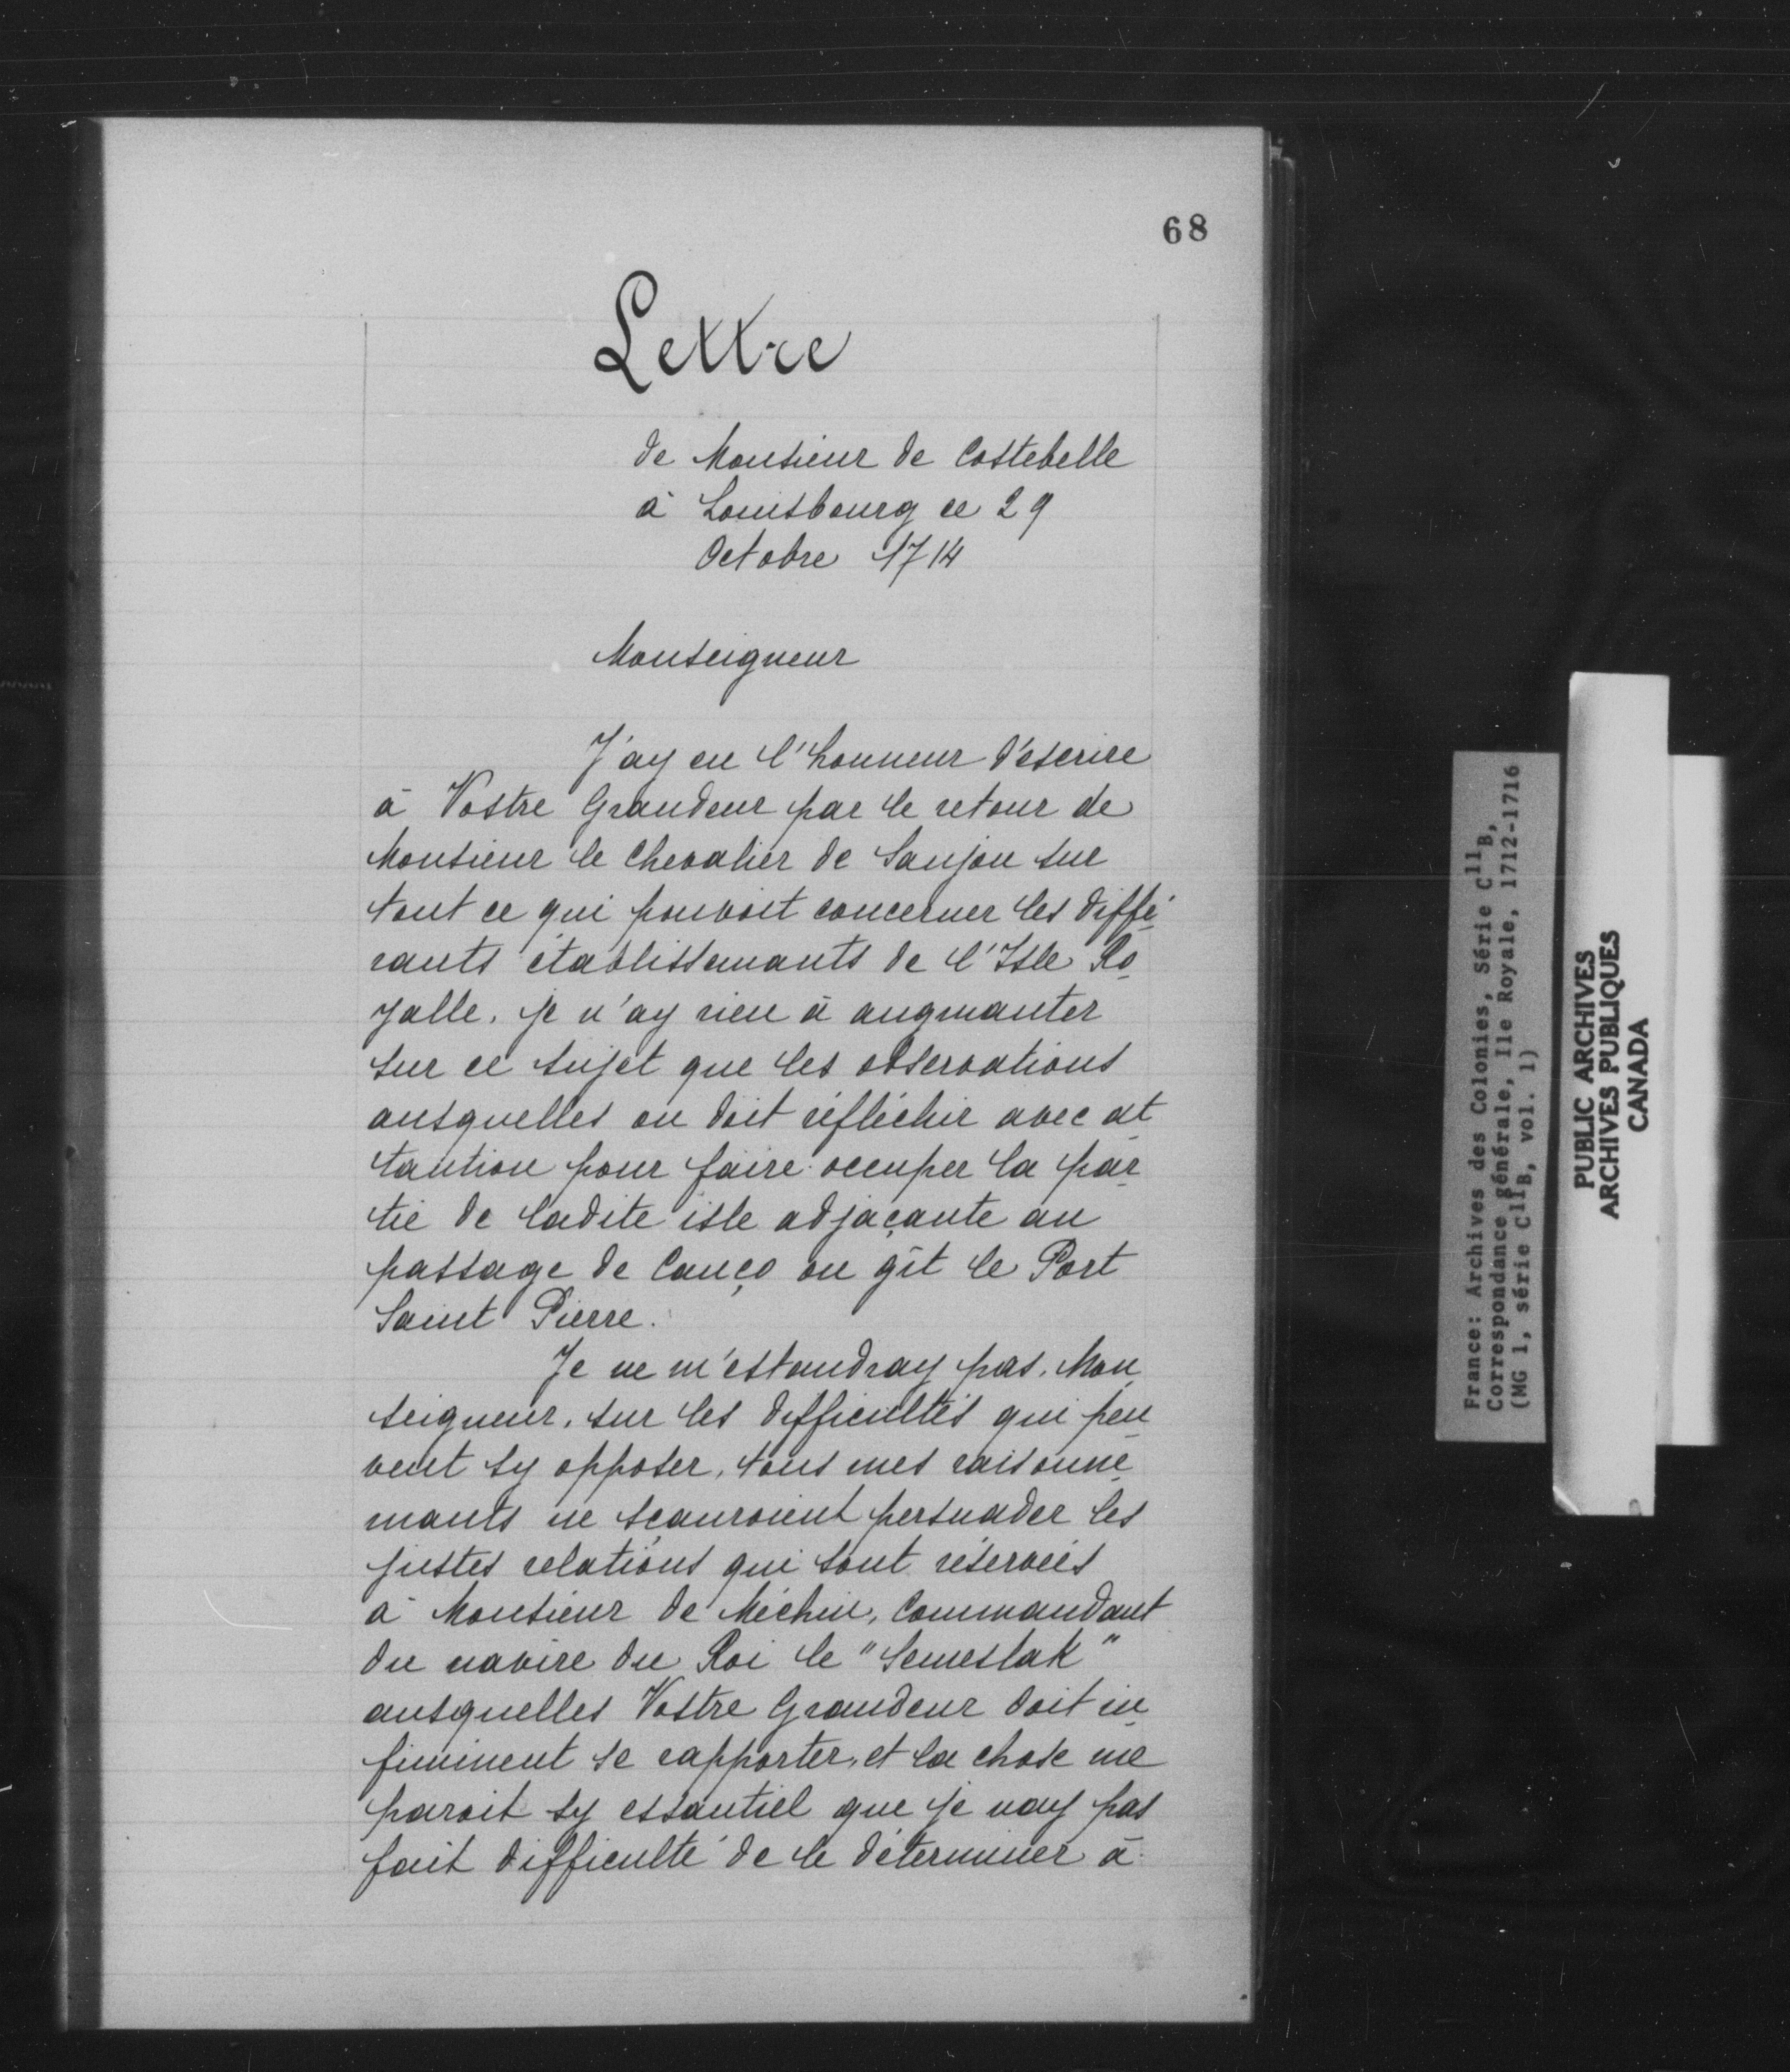 68
Lettre
de Monsieur de Costebelle
à Louisbourg ce 29
Octobre 1714
Monseigneur
J'ay eu l'honneur d'escrire
à Vostre Grandeur par le retour de
Monsieur le Chevalier de Saujon sur
tout ce qui pouvoit concerner les diffé
rants établissemants de l'Isle Ro
yalle. Je n'ay rien à augmanter
sur ce sujet que les observations
ausquelles on doit réfléchir avec at
tantion pour faire occuper la par
tie de ladite isle adjaçante au
passage de Canço ou gît le Port
Saint Pierre.
Je ne m'estandray pas, Mon
seigneur, sur les difficultés qui peu
vent sy opposer, tous mes raisonne
mants ne sçauroient persuader les
justes relations qui sont réservées
à Monsieur de Méchin, Commandant
du navire du Roi le "Semeslak"
ausquelles Vostre Grandeur doit in
finiment se rapporter, et la chose me
paroit sy essantiel que je nay pas
fait difficulté de le déterminer à
France: Archives des Colonies, Série C11B,
Correspondance générale, Ile Royale, 1712-1716
(MG 1, série C11B, vol. 1)
PUBLIC ARCHIVES
ARCHIVES PUBLIQUES
CANADA